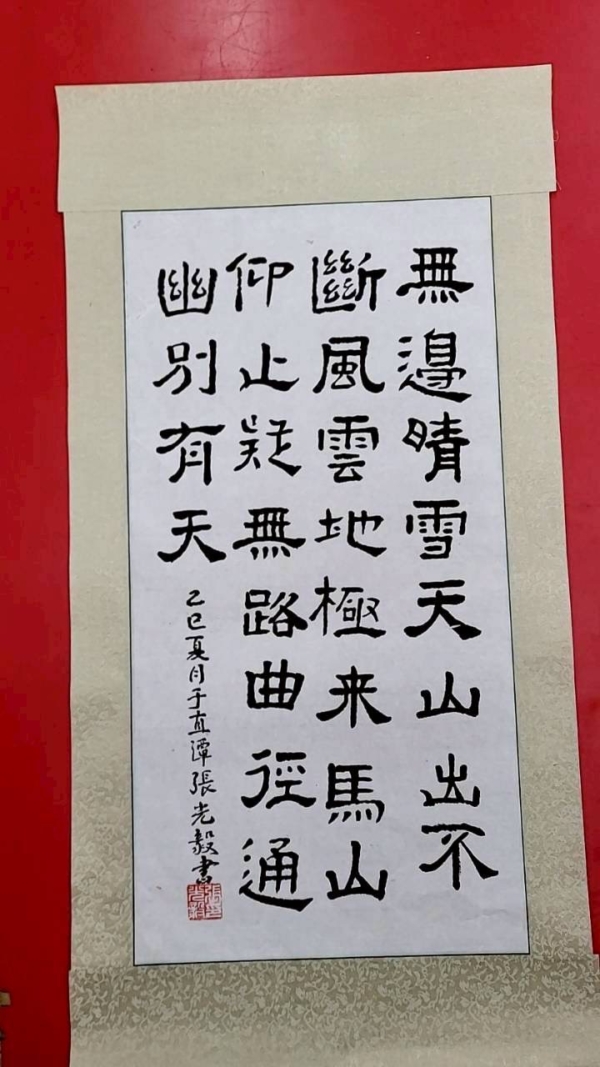 無邊晴雪天山出不
斷風雲地極来馬山
仰止疑無路曲徑通
幽别有天
乙巳夏月于直潭張光毅書